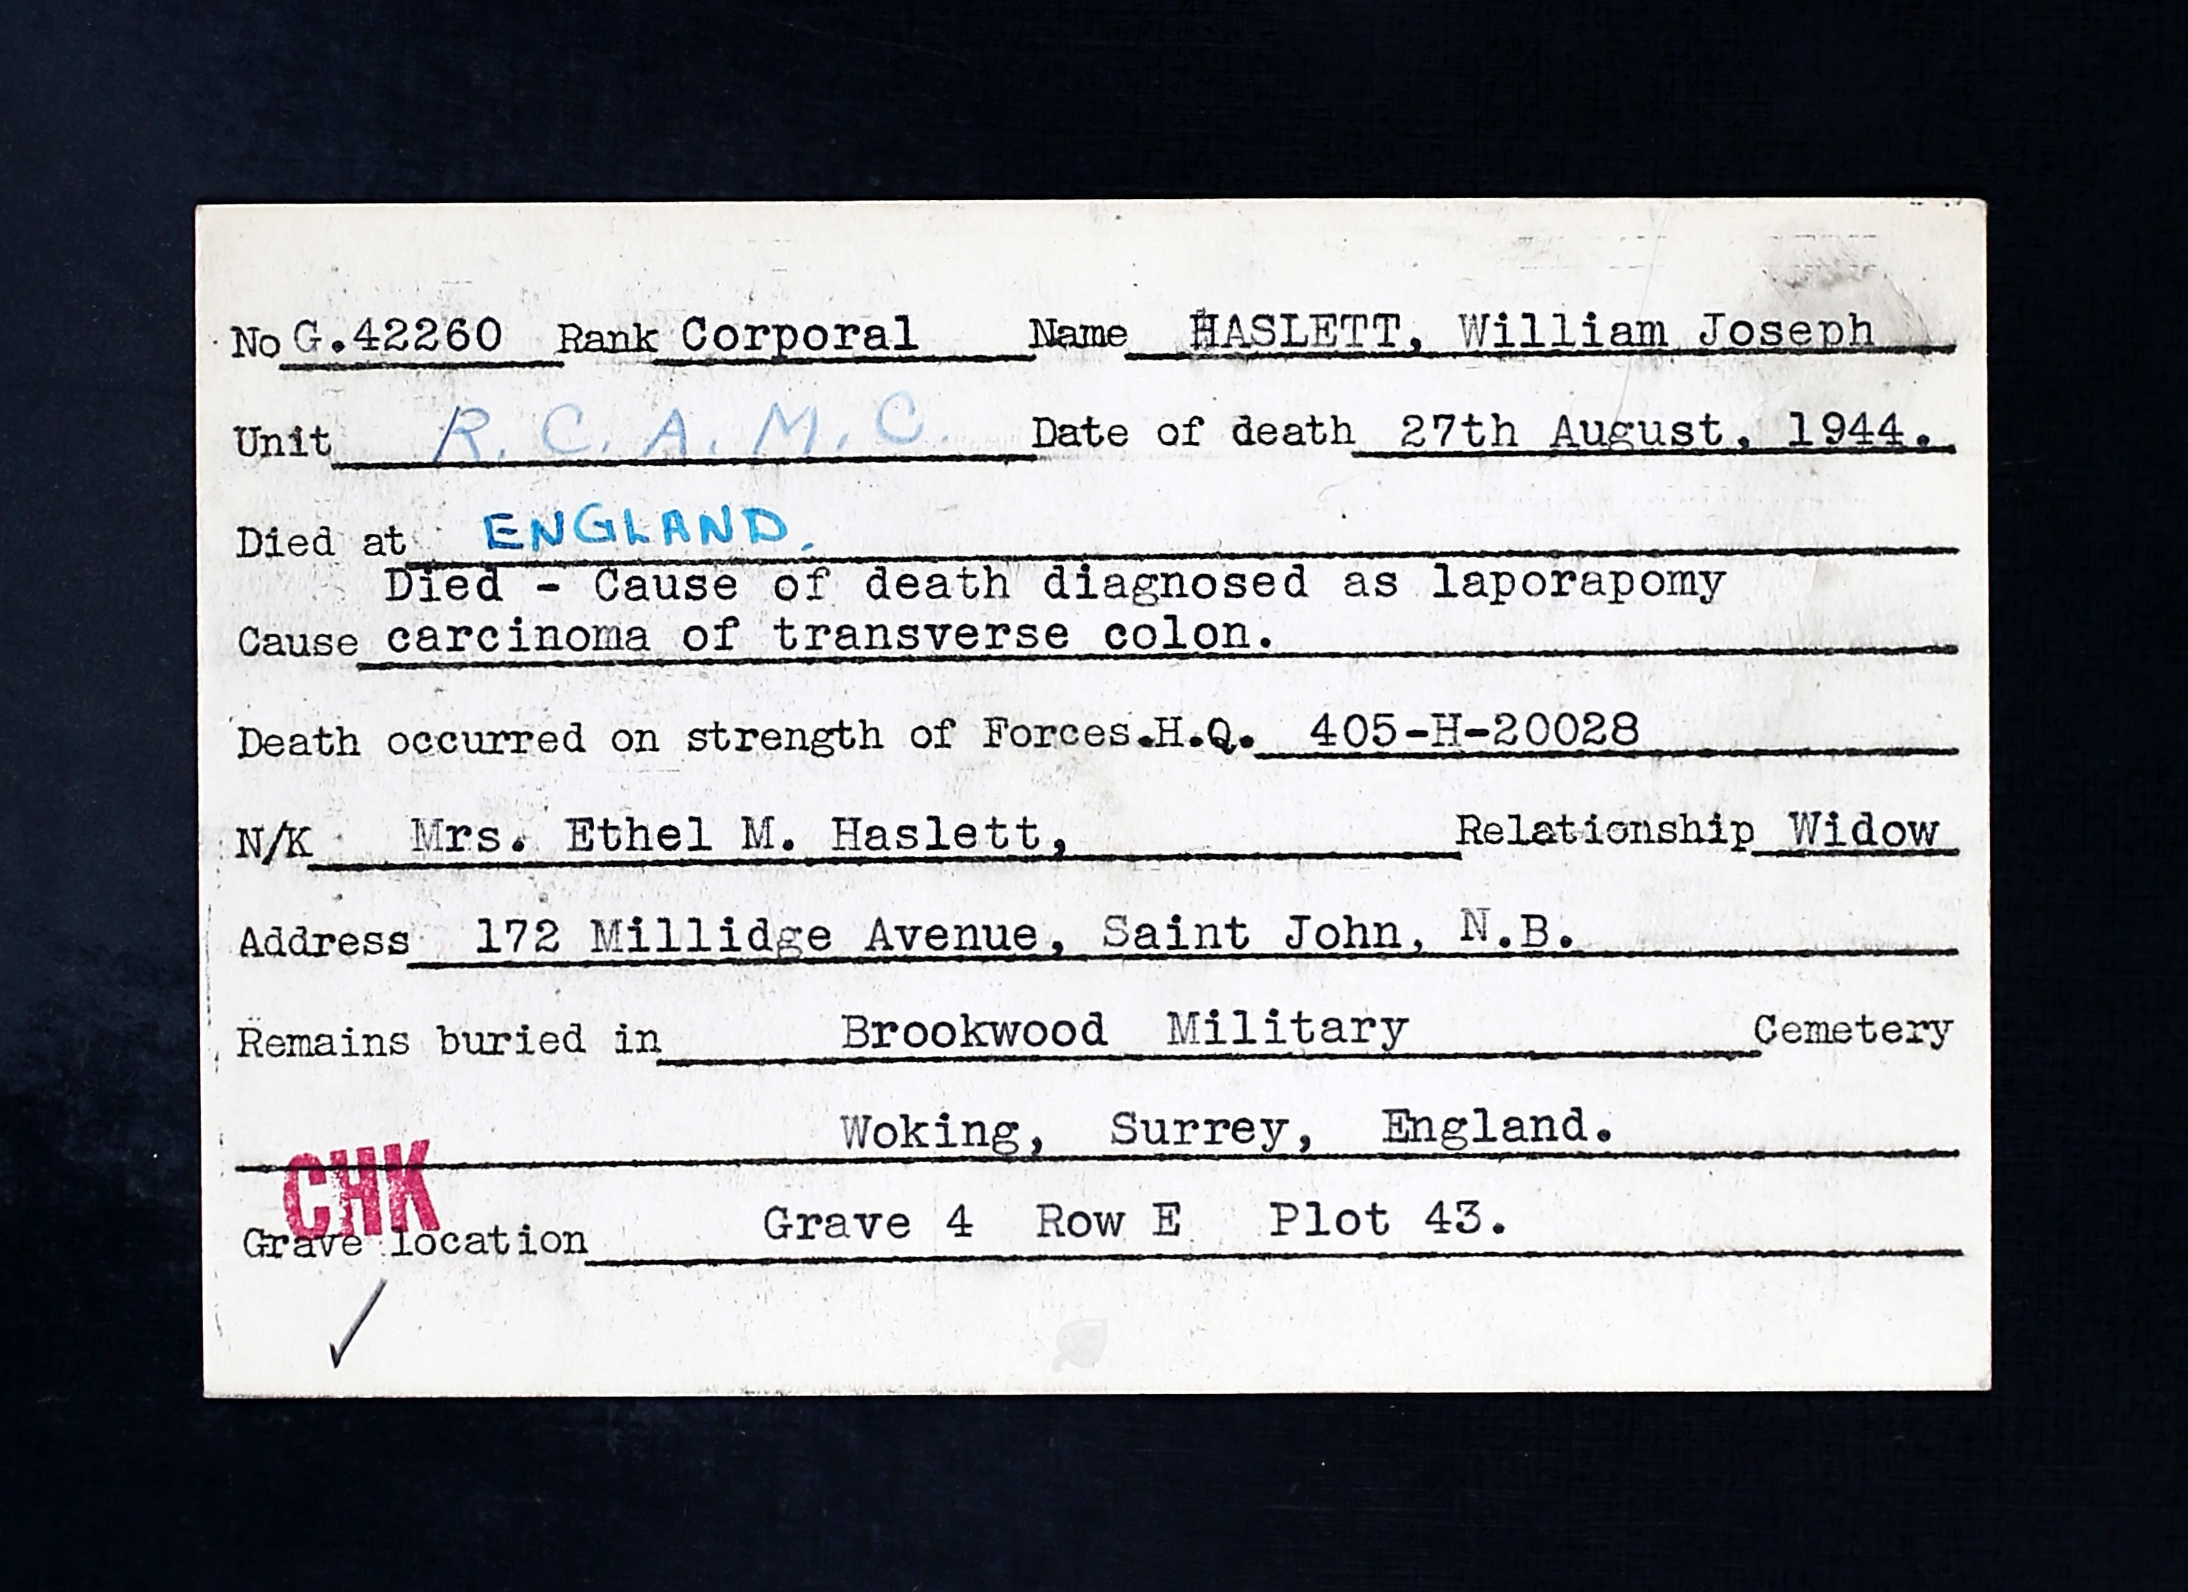 No G.42260 Rank Corporal Name HASLETT, William Joseph
Unit R.C.A.M.C. Date of death 27th August, 1944.
Died at ENGLAND.
Died - Cause of death diagnosed as laporapomy
Cause carcinoma of transverse colon.
Death occurred on strength of Forces.H.Q. 405-H-20028
N/K Mrs. Ethel M. Haslett, Relationship Widow
Address 172 Millidge Avenue, Saint John, N.B.
Remains buried in Brookwood Military Cemetery
Woking, Surrey, England.
CHK
Grave location Grave 4 Row E Plot 43.